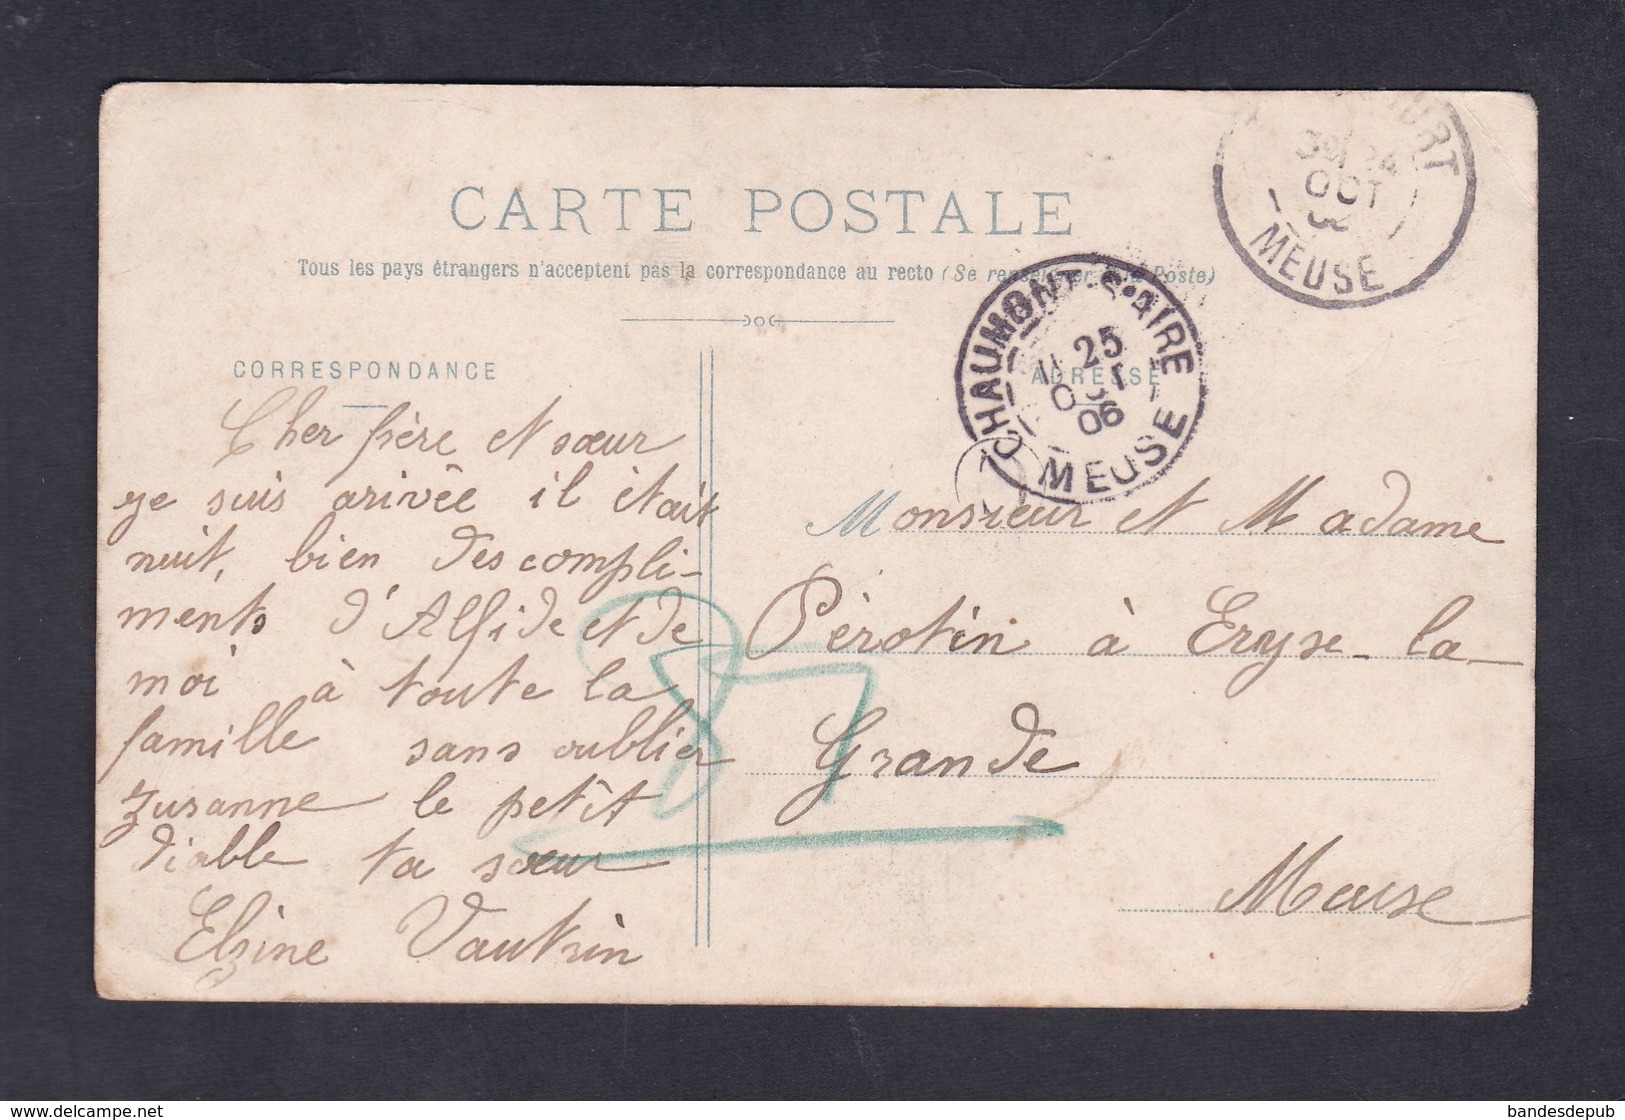 CARTE POSTALE
Tous les pays étrangers n'acceptent pas la correspondance au recto (Se renseigner à la Poste)
CORRESPONDANCE
ADRESSE
Cher frère et sœur
je suis arivêe il êtait
nuit, bien des compli-
ments d'Alfide et de
moi à toute la
famille sans oublier
zusanne le petit
diable ta sœur
Elzine Vautrin
Monsieur et Madame
Pérotin à Eryse-la-
Grande
Meuse
CHAUMONT-S-AIRE
25
OCT
06
MEUSE
OURT
OCT
MEUSE
www.delcampe.net
bandesdepub